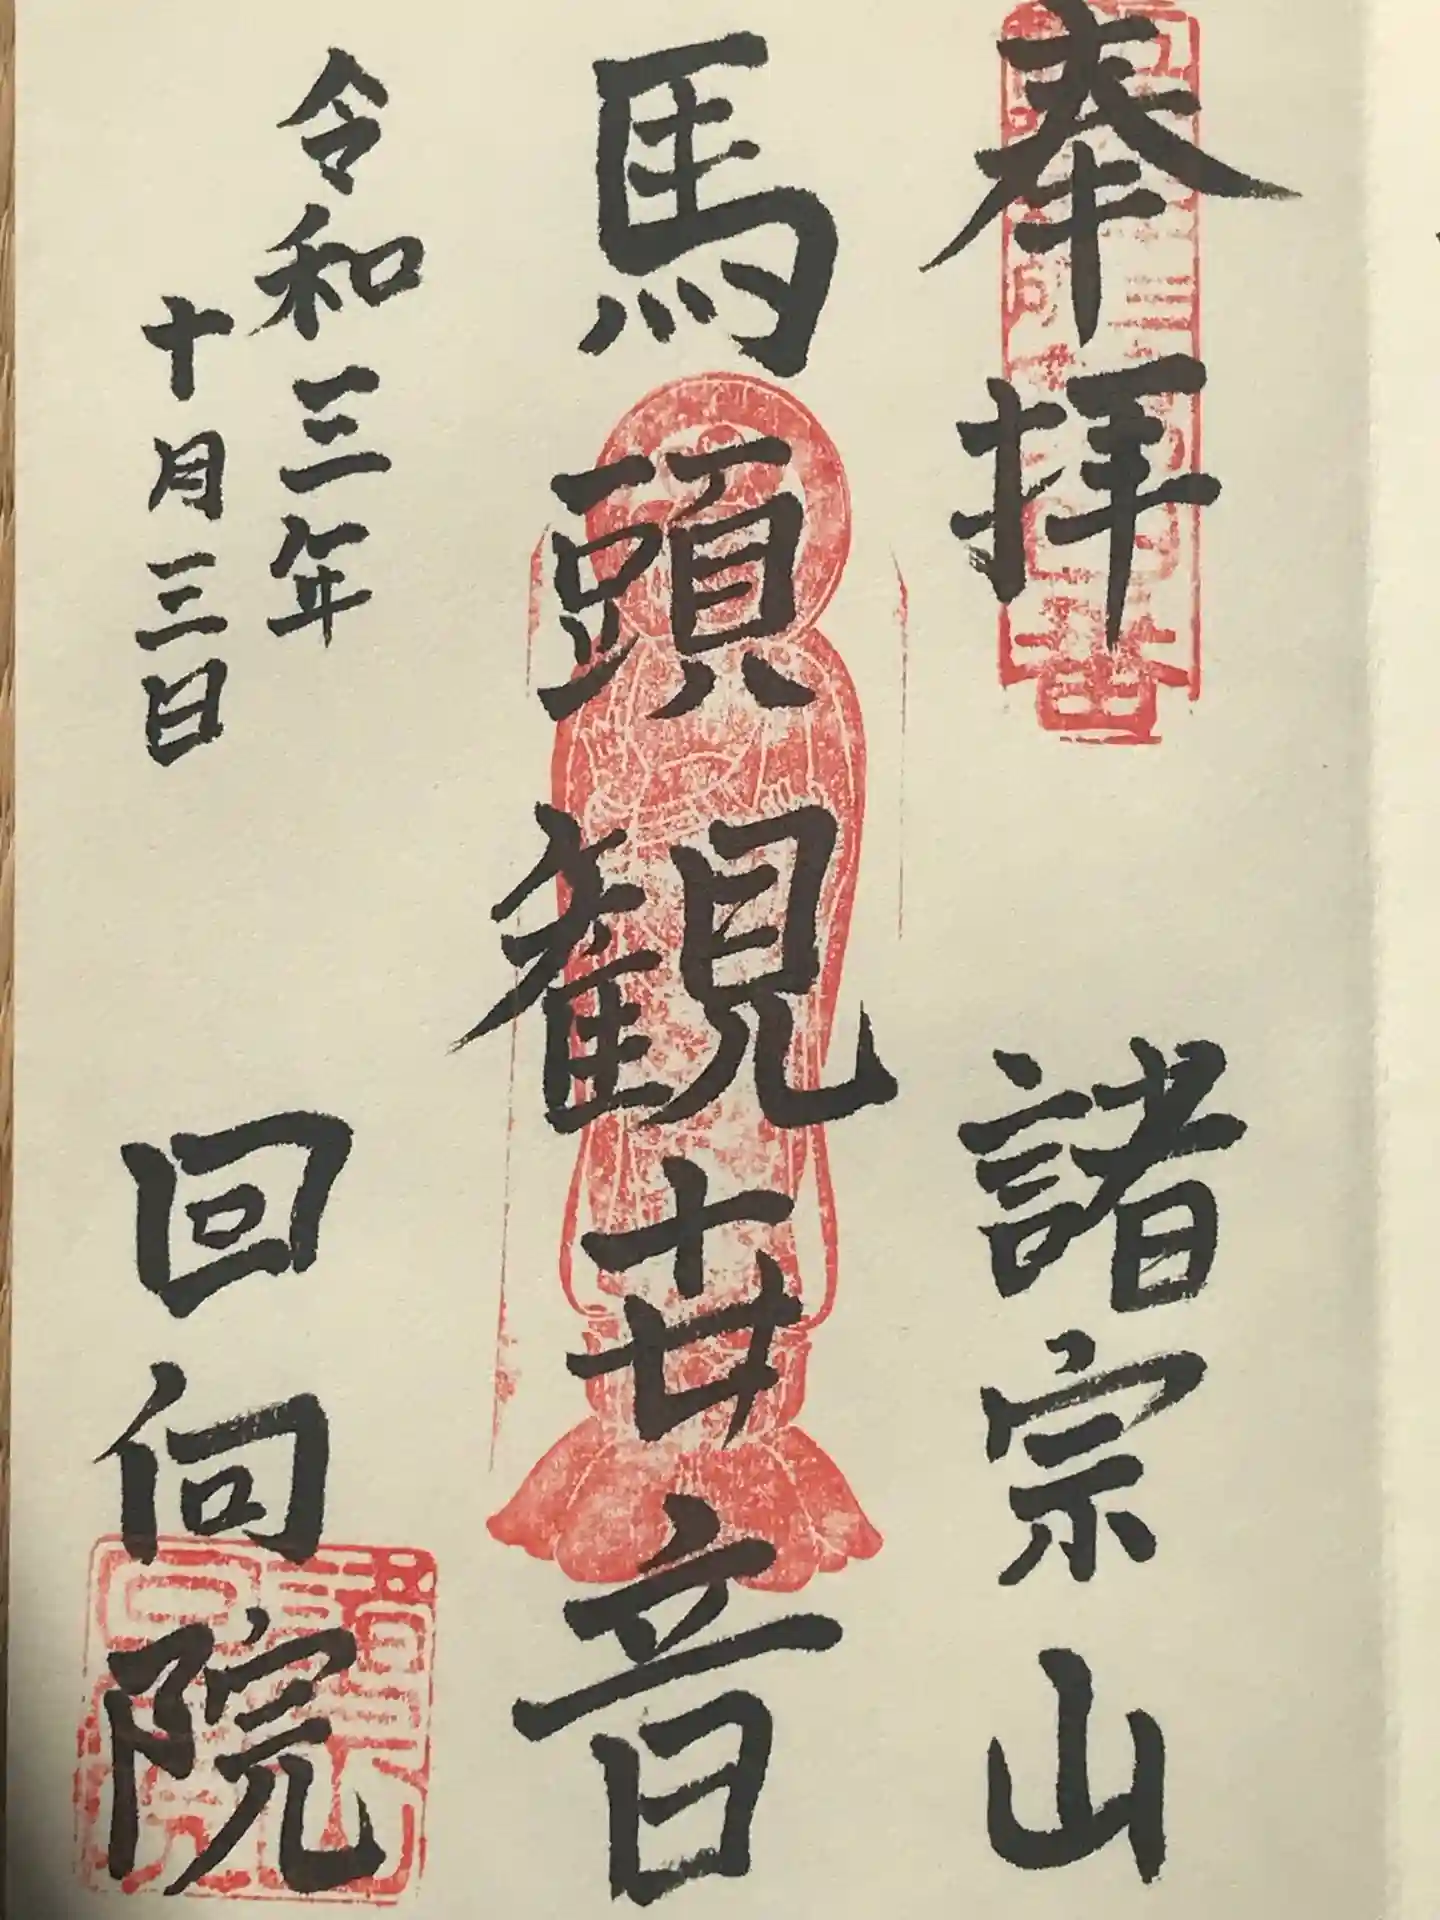 奉拝 諸宗山
馬頭観世音
令和三年
十月三日
回向院